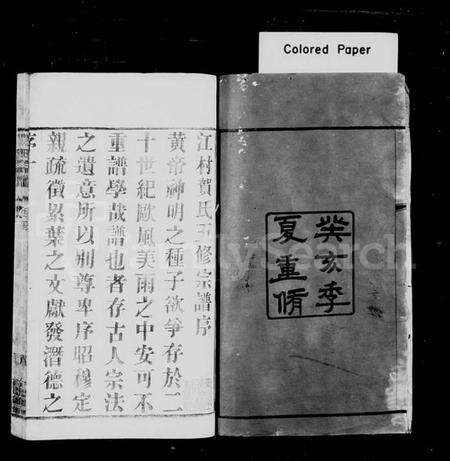 Colored Paper
癸亥季
夏重脩
江村賀氏五修宗譜序
黄帝神明之種子欲爭存於二
十世紀歐風美雨之中安可不
重譜學哉譜也者存古人宗法
之遺意所以别尊卑序昭穆定
親疏徵累葉之文獻發潛德之
序一